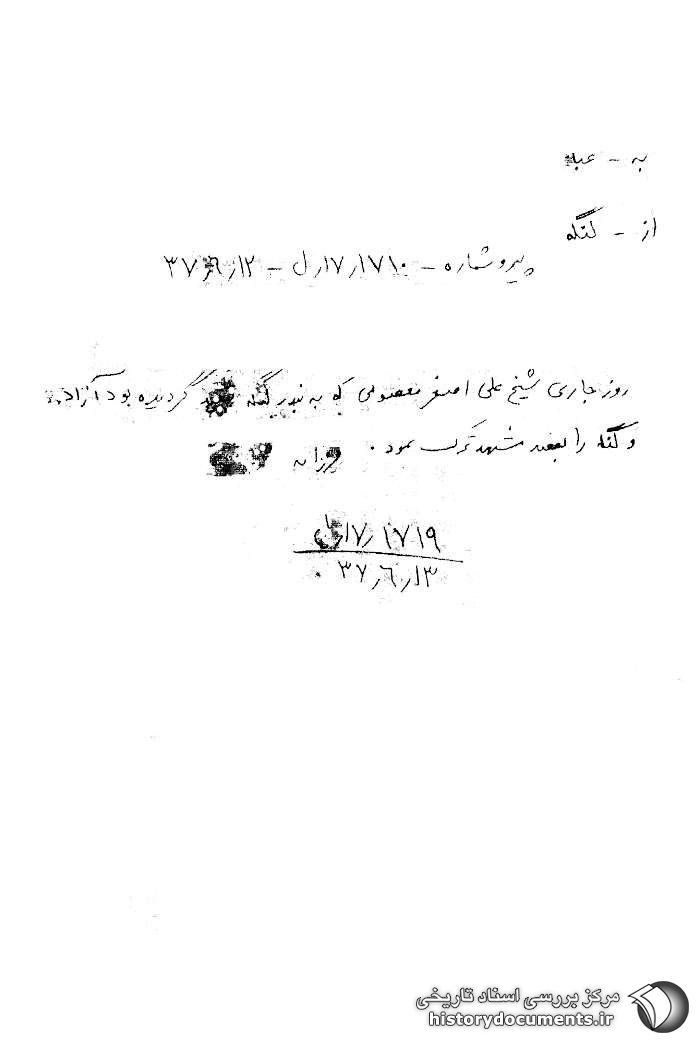 به - عبا
از - لنگه
پیرو شماره - ۱۷٫۱۷۱۰٫ل - ۳۷٫۶٫۱۲
روز جاری شیخ علی اصغر معصومی که به بندر لنگه گردیده بود آزاد
و لنگه را بقصد مشهد ترک نمود . فرزانه
۱۷٫۱۷۱۹
۳۷٫۶٫۱۳
مرکز بررسی اسناد تاریخی
historydocuments.ir